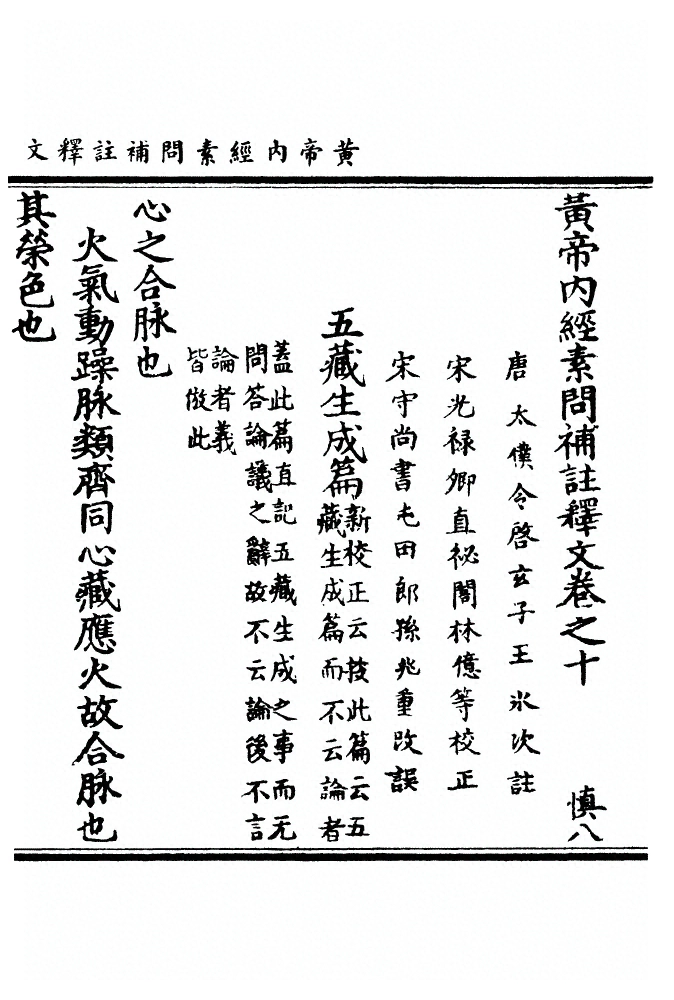 黃帝內經素問補註釋文
黃帝內經素問補註釋文卷之十 慎八
唐太僕令啓玄子王氷次註
宋光禄卿直祕閣林億等校正
宋守尚書屯田郎孫兆重改誤
五藏生成篇新校正云按此篇云五
藏生成篇而不云論者
蓋此篇直記五藏生成之事而无
問答論議之辭故不云論後不言
論者義
皆倣此
心之合脉也
火氣動躁脉類齊同心藏應火故合脉也
其榮色也